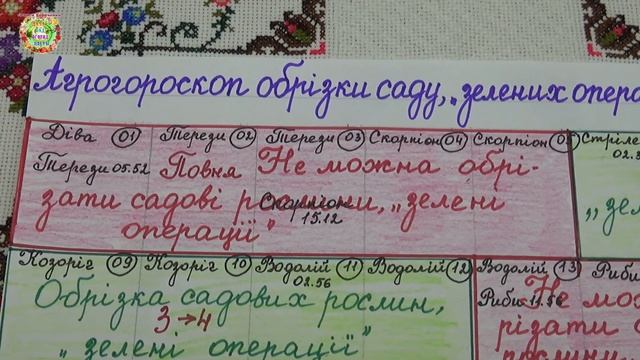 Агрогороскоп обрізки саду, „зелених опера
Діва 01 Терези 02 Терези 03 Скорпіон 04 Скорпіон 05 Стріле
Терези 05.52 Повня Не можна обрі-
зати садові рослини, „зелені
Скорпіон 15.12
операції"
02.
„зел
Козоріг 09 Козоріг 10 Водолій 11 Водолій 12 Водолій 13 Риби
02.56
Риби 11.56
Обрізка садових рослин,
3→4
„зелені операції"
Не мо
різати